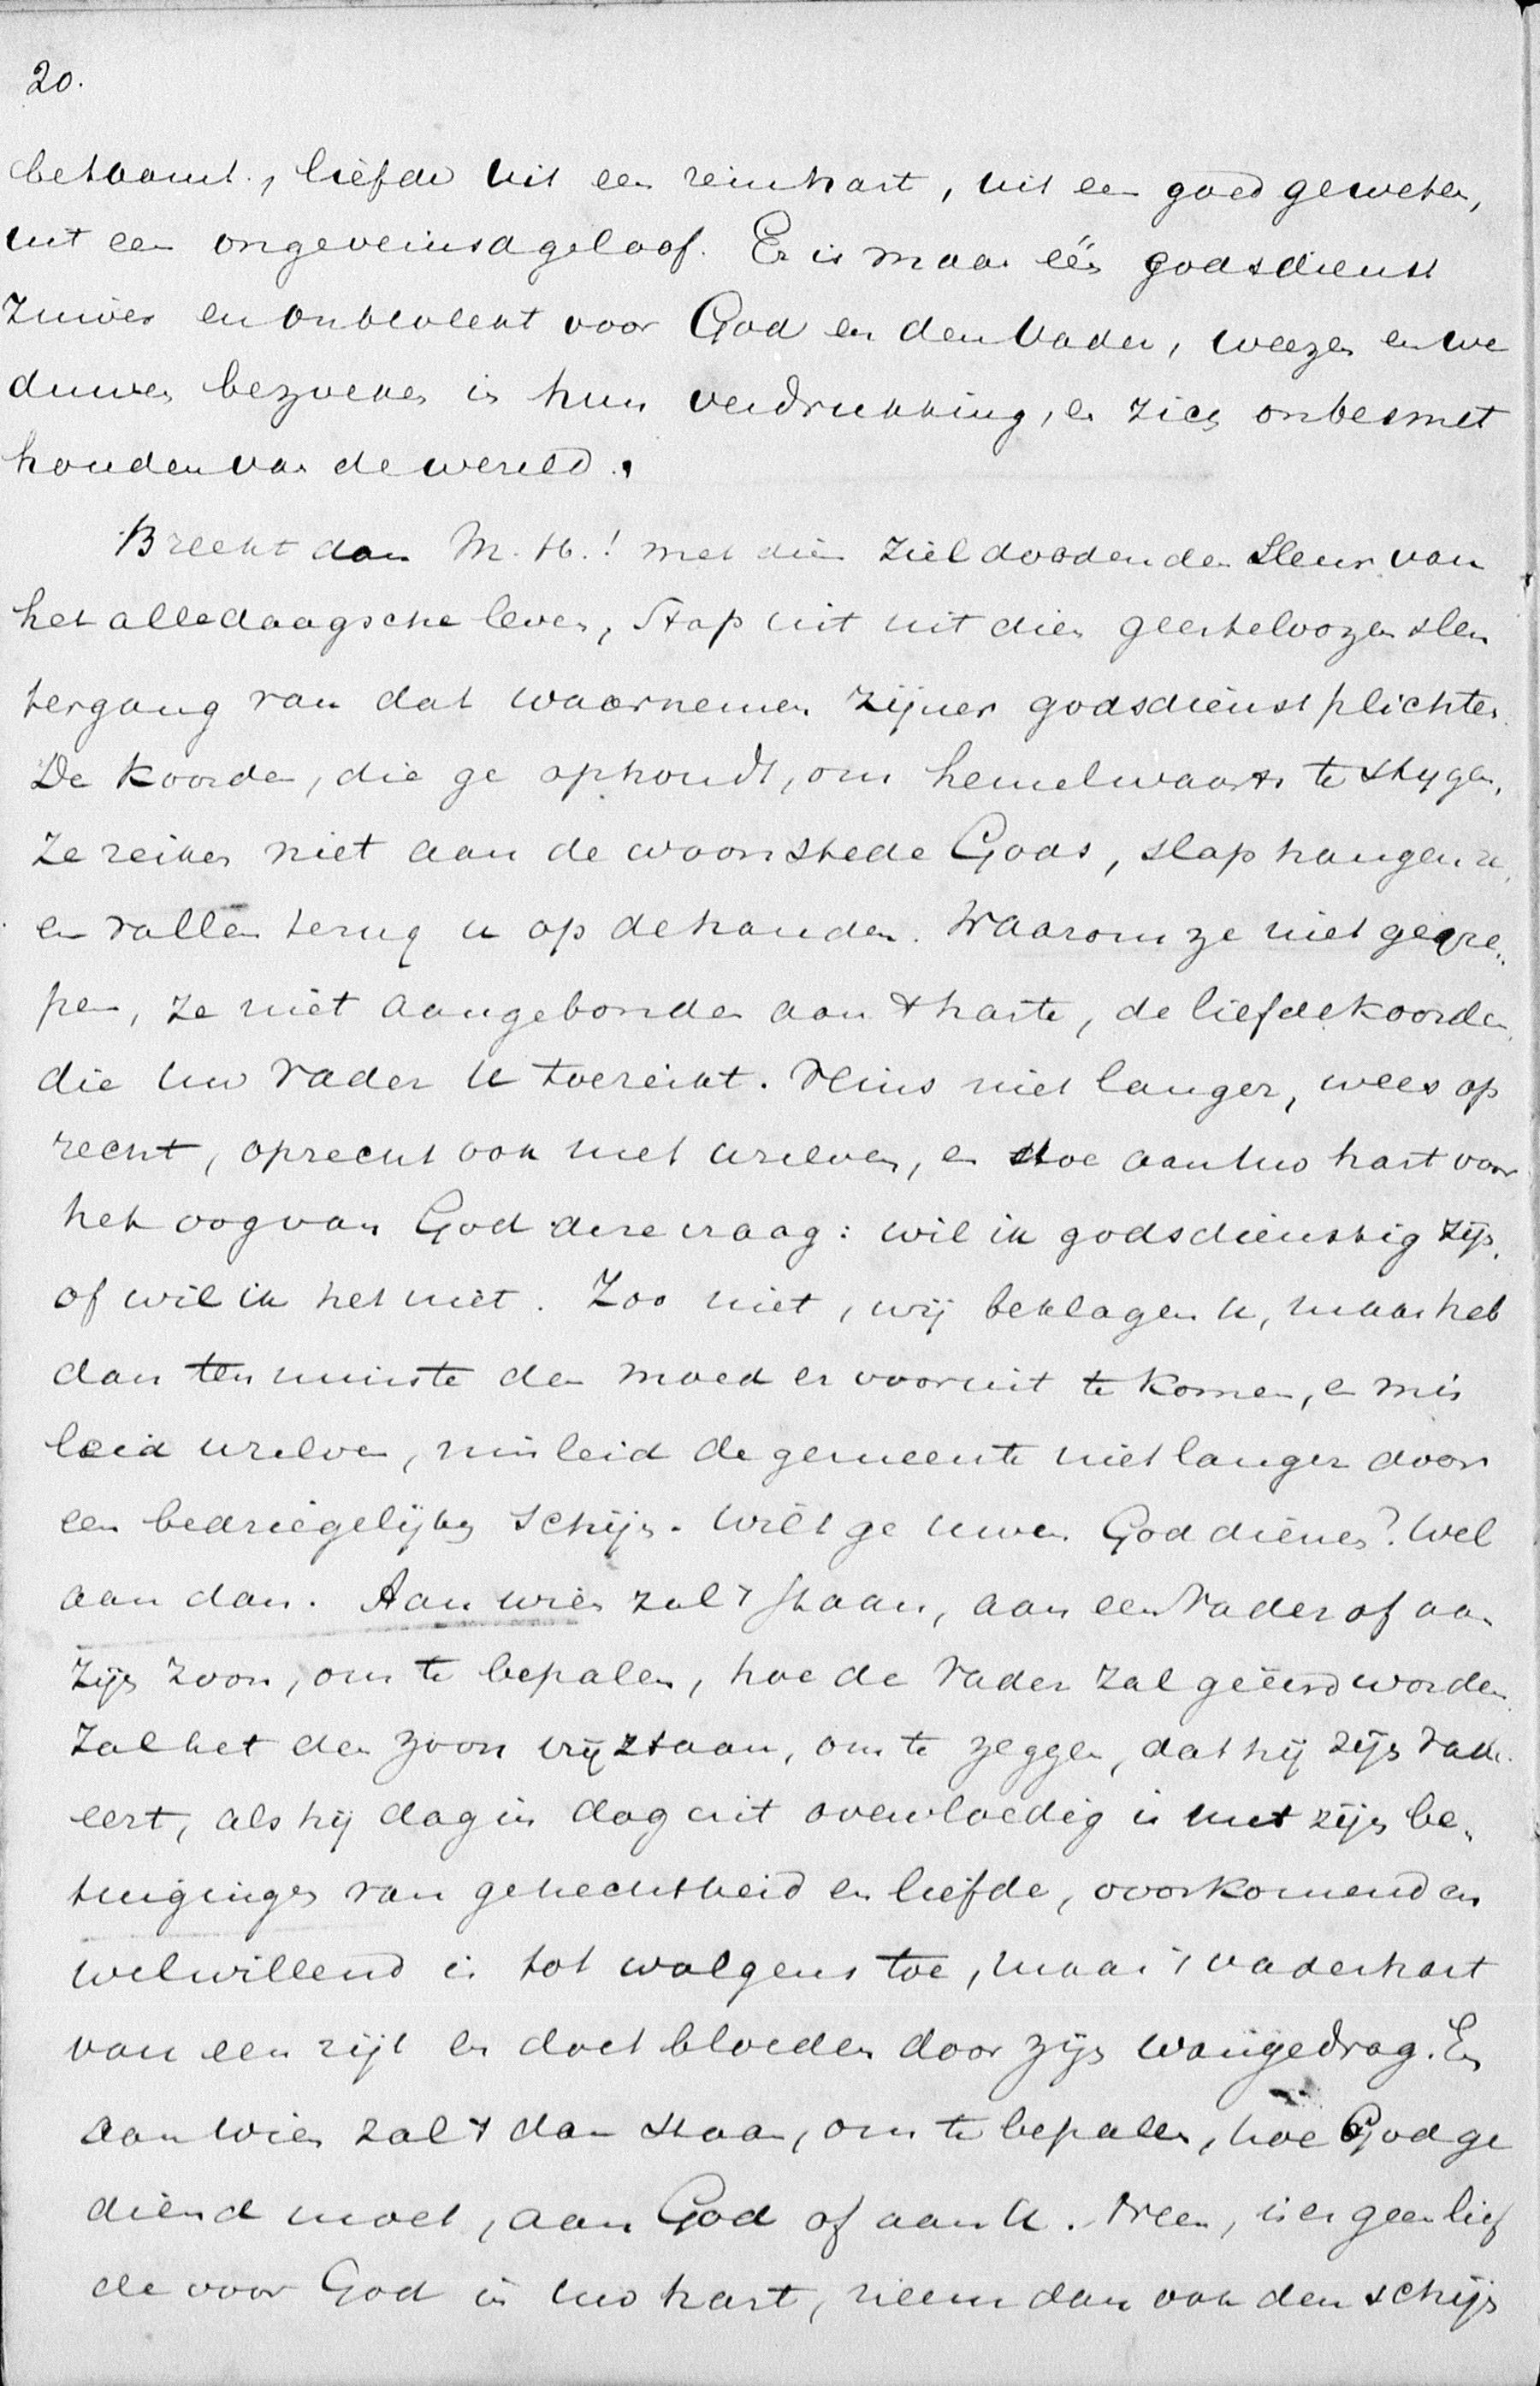 20.
betaamt, liefde uit een rein hart, uit een goed geweten,
uit een ongeveinsd geloof. Er is maar één godsdienst
zuiver en onbevlekt voor God en den Vader, weezen en we
duwen bezoeken in hun verdrukking, en zich onbesmet
houden van de wereld.
Breekt dan M. H.! met dien zieldoodenden sleur van
het alledaagsche leven, stap uit uit dien geesteloozen slen
tergang van dat waarnemen zijner godsdienstplichten.
De koorden, die ge ophoudt, om hemelwaarts te stygen,
ze reiken niet aan de woonstede Gods, slap hangen ze,
en vallen terug u op de handen. Waarom ze niet gegre,,
pen, ze niet aangebonden aan 't harte, de liefdekoorden
die uw Vader u toereikt. Veins niet langer, wees op
recht, oprecht ook met uzelven, en doe aan uw hart voor
het oog van God deze vraag: wil ik godsdienstig zijn,
of wil ik het niet. Zoo niet, wij beklagen u, maar heb
dan ten minste den moed er vooruit te komen, en mis
leid uzelven, misleid de gemeente niet langer door
een bedriegelijken schijn. Wilt ge uwen God dienen? Wel
aan dan. Aan wien zal 't staan, aan een Vader of aan
zijn zoon, om te bepalen, hoe de Vader zal geëerd worden.
Zal het den zoon vrij staan, om te zeggen, dat hij zijn Vader
eert, als hij dag in dag uit overvloedig is met zijn be,,
tuigingen van gehechtheid en liefde, voorkomend en
welwillend is tot walgens toe, maar 't vaderhart
van een rijt en doet bloeden door zijn wangedrag. En
aan wien zal 't dan staan, om te bepalen, hoe God ge
diend moet, aan God of aan u. Neen, is er geen lief
de voor God in uw hart, neem dan ook den schijn